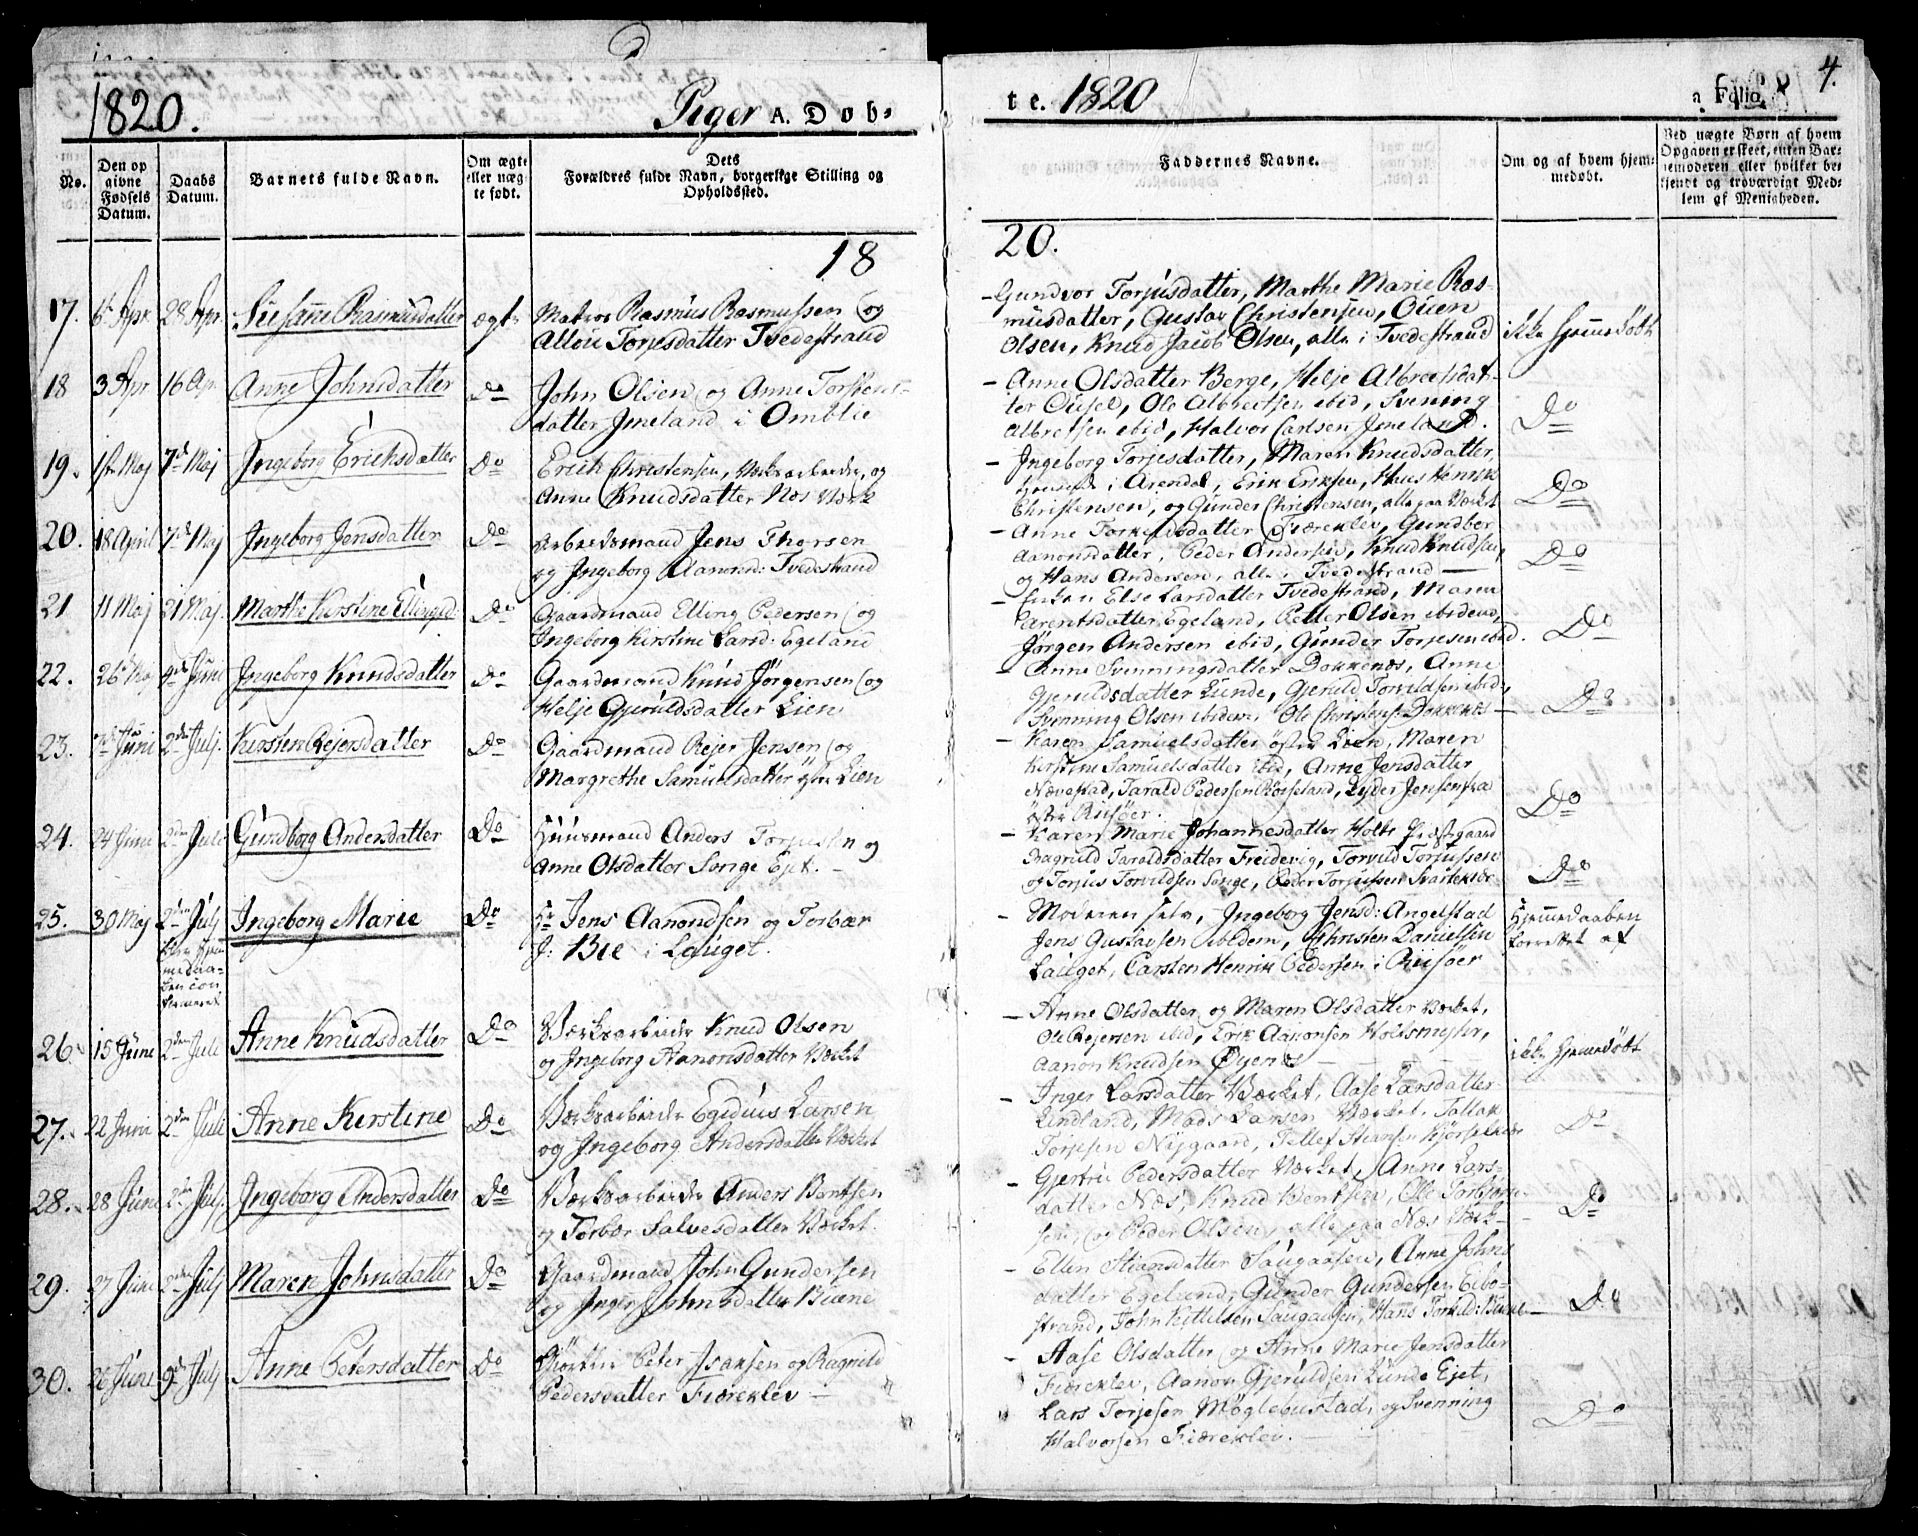 1820.
Piger A. Døb=
te. 1820
a Folio
4.
No.
Den op
givne
Fødsels
Datum.
Daabs
Datum.
Barnets fulde Navn.
Om ægte
eller uæg=
te født.
Dets
Forældres fulde Navn, borgerlige Stilling og
Opholdssted.
Faddernes Navne.
Om og af hvem hjem=
medøbt.
Ved uægte Børn af hvem
Opgaven er skeet, enten Bar=
nemoderen eller hvilket be=
kjendt og troværdigt Med=
lem af Menigheden.
18
20.
17. 6 Apr 28 Apr. Susanne Rasmusdatter ægte
Matros Rasmus Rasmussen og
Torjesdatter Tvedestrand
– Gundvor Torjusdatter, Marthe Marie Ras-
musdatter, Gustav Christensen, Ouen
Olsen, Knud Jacob Olsen, alle i Tvedestrand
ikke hjemmedøbt
18 3 Apr 16 Ap. Anne Johnsdatter Do
John Olsen og Anne Torstens-
datter Imeland i Omblie
– Anne Olsdatter Berge, Helje Albretsdat-
ter Ousel, Ole Albretsen ibid, Svening
Albretsen ibid, Halvor Carlsen Imeland.
Do
19. 1ste Maj 7de Maj Ingeborg Erichsdatter Do
Erich Christensen, Værksarbeider, og
Anne Knudsdatter Næs Værk
– Ingeborg Torjesdatter, Maren Knudsdatter,
i Arendal, Erik Eriksen, Hans Henrik
Christensen, og Gunder Christensen, alle paa Værket
Do
20. 18 April 7de Maj Ingeborg Jensdatter Do
Arbeidsmand Jens Thorsen
og Ingeborg Aanonsd: Tvedestrand
– Anne Torkelsdatter Fiæreklev, Gundbor
Aanonsdatter, Peder Andersen, Knud Knudsen,
og Hans Andersen, alle i Tvedestrand –
Do
21. 11 Maj 21 Maj. Marthe Kirstine Ellingsd: Do
Gaardmand Elling Pedersen og
Ingeborg Kirstine Larsd: Egeland
– Enken Else Larsdatter Tvedestrand, Maren
Arentsdatter Egeland, Petter Olsen ibidem,
Jørgen Andersen ibid, Gunder Torjesen ibid.
Do
22. 26 Maj 4de Juni Ingeborg Knudsdatter Do
Gaardmand Knud Jørgensen og
Helje Gjeruldsdatter Lien
– Anne Svenningsdatter Dokkenes, Anne
Gjeruldsdatter Lunde, Gjeruld Torvildsen ibid:,
Svenning Olsen ibidem, Ole Christens: Dokkenes –
Do
23. Juni 2den Julj. Kirsten Rejersdatter Do
Gaardmand Rejer Jensen og
Margrethe Samuelsdatter østre Lien
– Karen Samuelsdatter østre Lien, Maren
Kirstine Samuelsdatter ibid, Anne Jensdatter
Nævestad, Tarald Pedersen Røiseland, Jensen fra
østre Riisøer.
Do
24. 24 Juni 2den Juli Gundborg Andersdatter Do
Huusmand Anders Torjussen og
Anne Olsdatter Songe Ejet. –
– Karen Marie Johannesdatter Holte Præstegaard
Ragnild Taraldsdatter Freidevig, Torvild Torjussen
og Torjus Torvildsen Songe, Peder Torjussen Svartekiær
Do
25. 30 Maj 2den Julj Ingeborg Marie Do
blev hjem
medaa-
ben con
firmeret
Hr Jens Aanondsen og Torbær
J: Bie i Lauget.
– Moderen selv, Ingeborg Jensd: Angelstad
Jens Gustavsen ibidem, Christen Danielsen
Lauget, Carsten Henrik Pedersen i Riisøer
Hjemmedaaben
forrettet af
26. 15 June 2den Juli Anne Knudsdatter Do
Værksarbeider Knud Olsen
og Ingeborg Aanonsdatter Værket
– Anne Olsdatter og Maren Olsdatter Værket,
Ole Rejersen ibid, Erik Aanonsen Holtsmyhr,
Aanon Knudsen Øyenes –
ikke hjemmedøbt
27. 22 Juni 2den Juli Anne Kirstine Do
Værksarbeider Egidius Larsen
og Ingeborg Andersdatter Værket
– Inger Larsdatter Værket, Aase Larsdatter
Lindland, Mads Larsen Værket, Tallak
Torjesen Nisgaard, Tellef Steansen
Do
28. 28 June 2den Julj. Ingeborg Andersdatter Do
Værksarbeider Anders Bentsen
og Torbør Salvesdatter Værket.
– Gjertru Pedersdatter Værket, Anne Lars-
datter Næs, Knud Bentsen, Ole Torbjørn-
sen, og Peder Olsen, alle paa Næs Værk –
Do
29. 27 June 2den Julj Maren Johnsdatter Do
Gaardmand John Gundersen
og Inger Johnsdatter Buene
– Ellen Steansdatter Saugaasen, Anne Johns
datter Egelund, Gunder Gundersen Eibo-
strand, John Kittelsen Saugaasen, Hans Torkild: Buene
Do
30. 26 June 9de Julj Anne Petersdatter Do
Peter Isaksen og Ragnild
Pedersdatter Fiæreklev –
– Aase Olsdatter og Anne Marie Jensdatter
Fiæreklev, Aanon Gjeruldsen Lunde Ejet,
Lars Torjesen Møglebustad, og Svenning
Halvorsen Fiæreklev.
Do